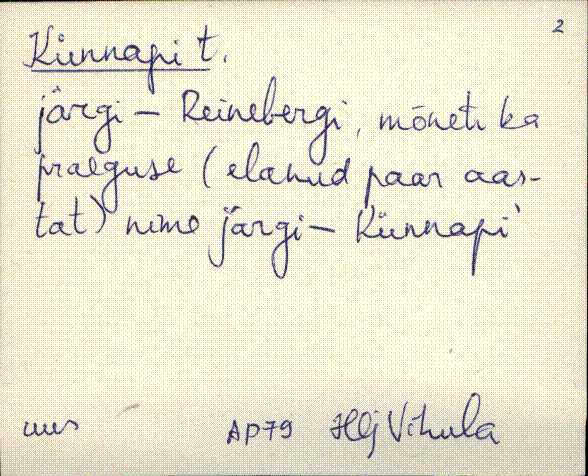 2
Künnapi t.
järgi – Reinebergi, mõneti ka
praeguse (elanud paar aas-
tat) nime järgi – Künnapi'
uus AP79 Hlj Vihula